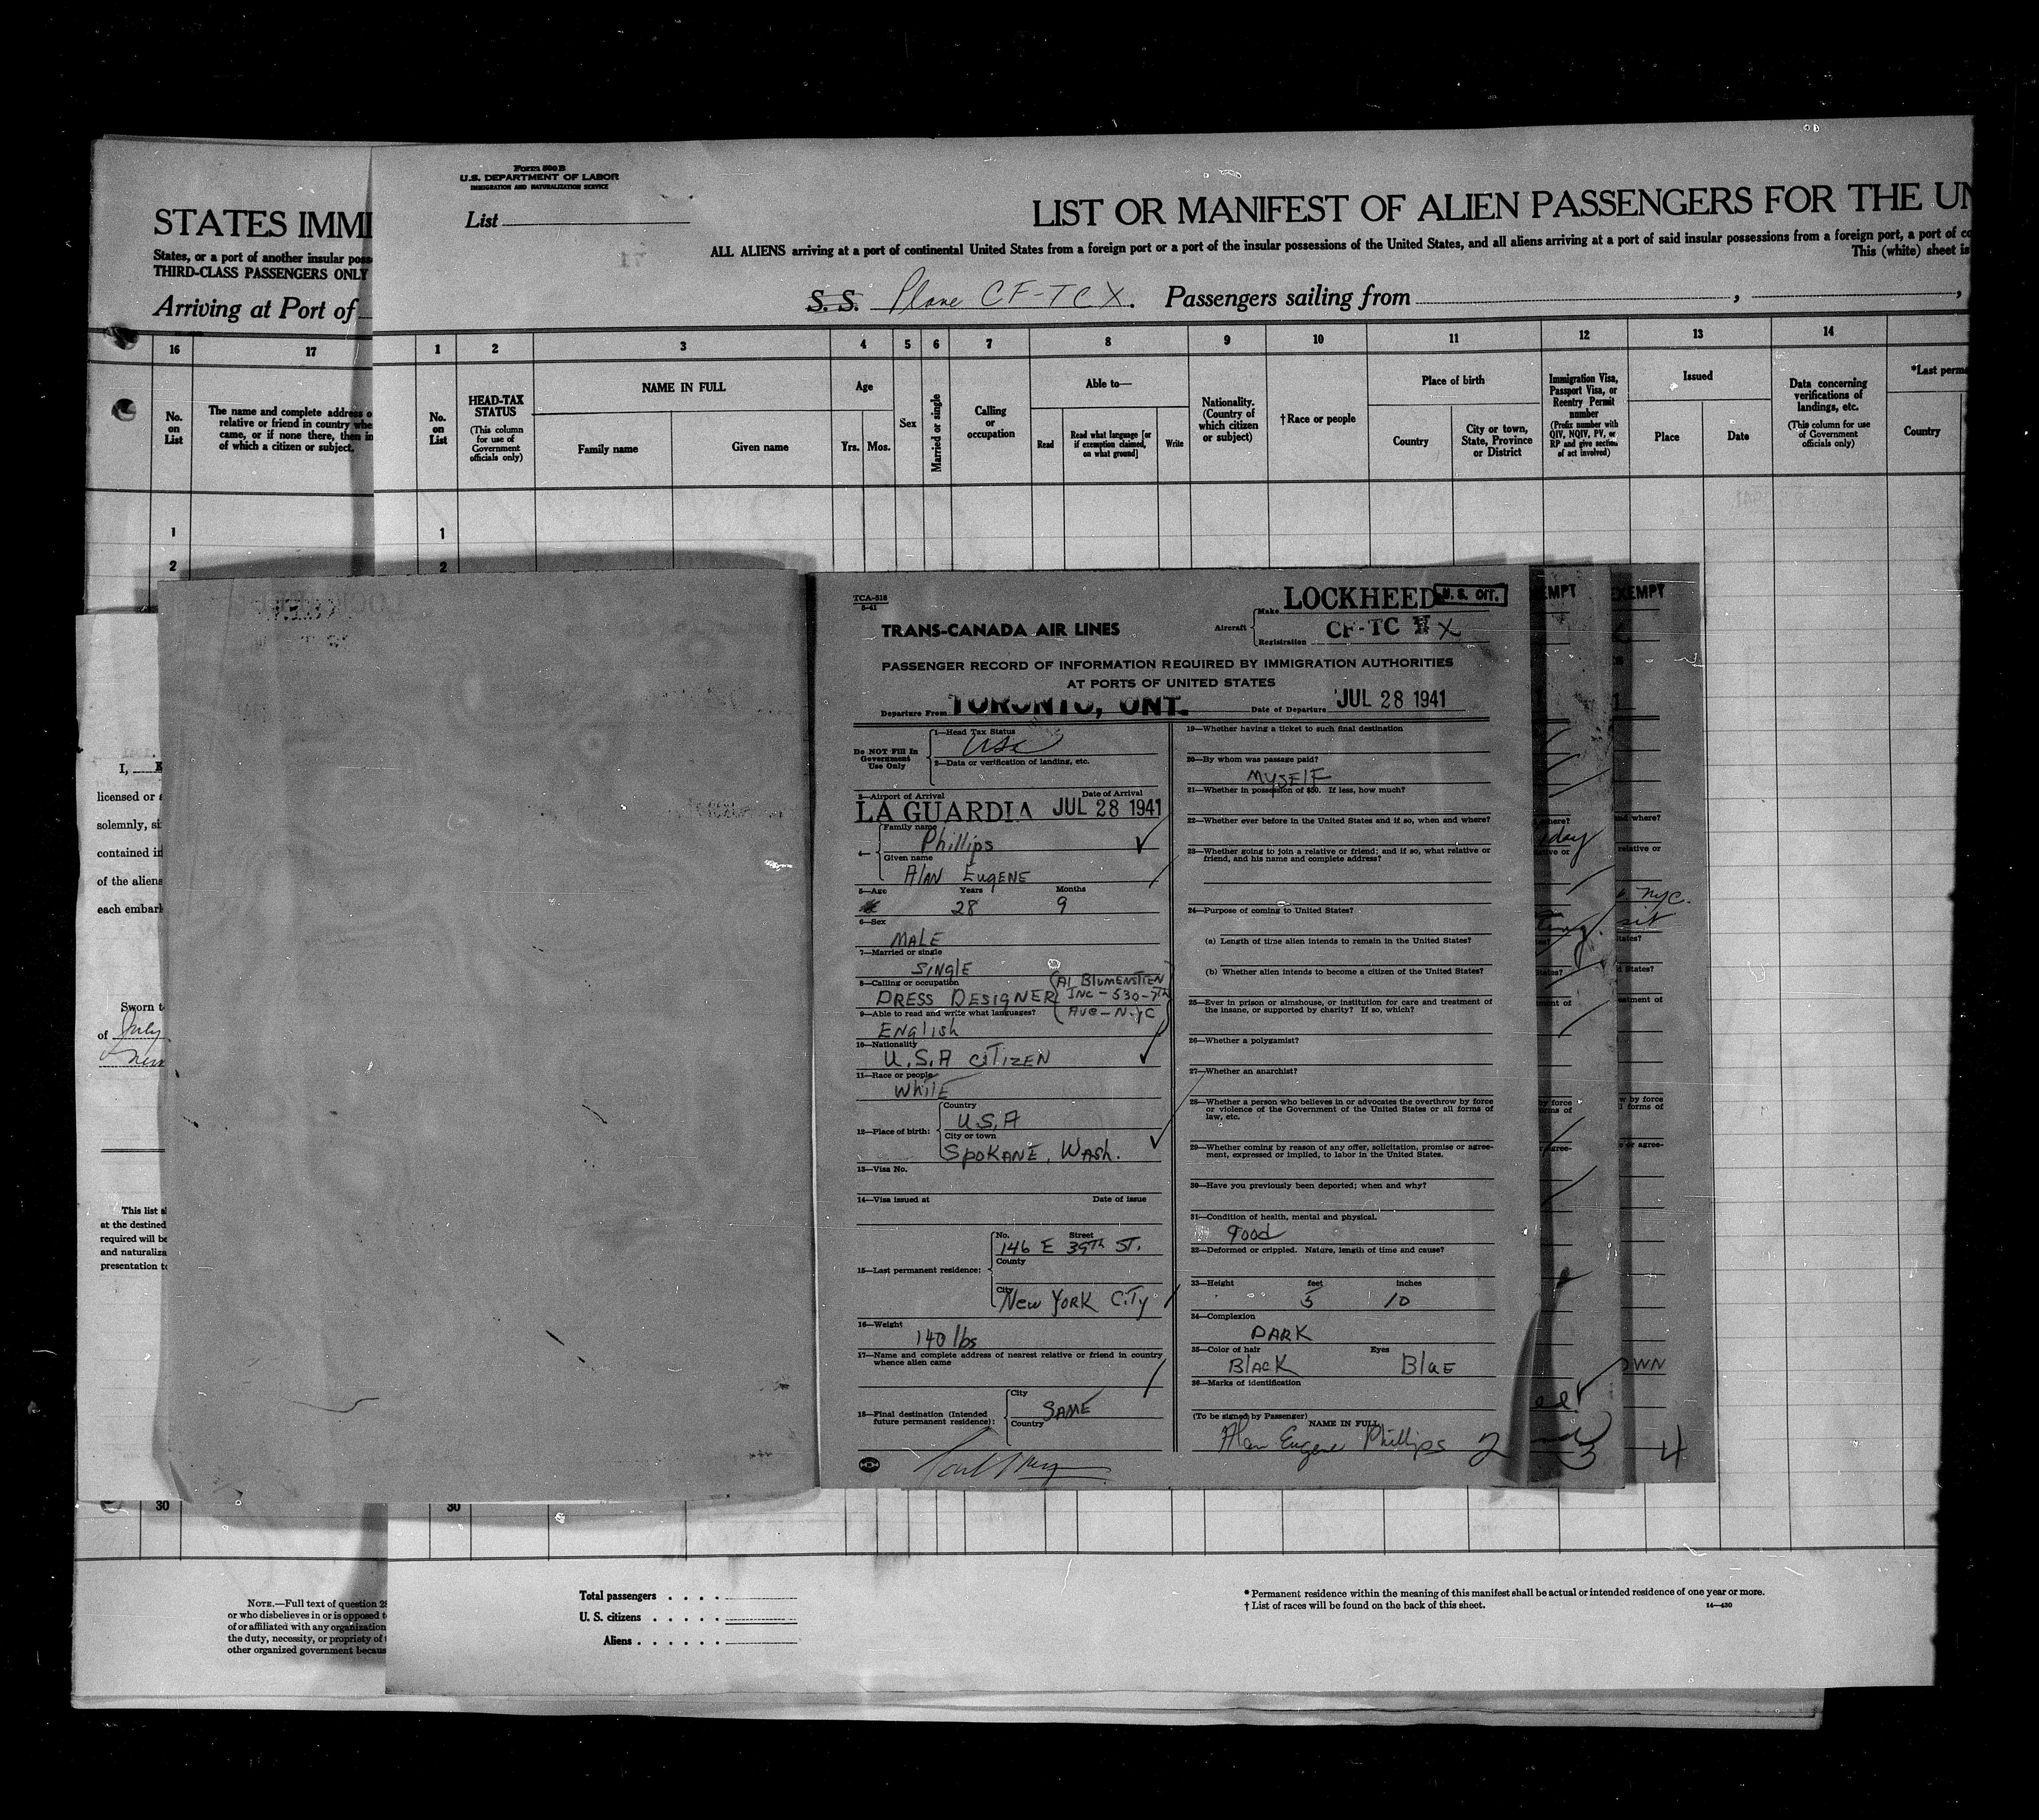 Form 500 B
U.S. DEPARTMENT OF LABOR
IMMIGRATION AND NATURALIZATION SERVICE
List
STATES IMMI
LIST OR MANIFEST OF ALIEN PASSENGERS FOR THE UN
States, or a port of another insular poss
THIRD-CLASS PASSENGERS ONLY
ALL ALIENS arriving at a port of continental United States from a foreign port or a port of the insular possessions of the United States, and all aliens arriving at a port of said insular possessions from a foreign port, a port of co
This (white) sheet is
Arriving at Port of
S. S. Plane CF-TCX. Passengers sailing from
16 17
No. on List
The name and complete address o
relative or friend in country whe
came, or if none there, then in
of which a citizen or subject.
1 2 3 4 5 6 7 8 9 10 11 12 13 14
No. on List
HEAD-TAX STATUS
(This column for use of Government officials only)
NAME IN FULL
Family name
Given name
Age
Yrs. Mos.
Sex
Married or single
Calling or occupation
Able to—
Read
Read what language [or if exemption claimed, on what ground]
Write
Nationality. (Country of which citizen or subject)
†Race or people
Place of birth
Country
City or town, State, Province or District
Immigration Visa, Passport Visa, or Reentry Permit number
(Prefix number with QIV, NQIV, PV, or RP and give section of act involved)
Issued
Place
Date
Data concerning verifications of landings, etc.
(This column for use of Government officials only)
*Last perma
Country
1 1
2 2
TCA-518
5-41
TRANS-CANADA AIR LINES
Aircraft
Make LOCKHEED
U. S. CIT.
Registration CF-TC X
PASSENGER RECORD OF INFORMATION REQUIRED BY IMMIGRATION AUTHORITIES
AT PORTS OF UNITED STATES
Departure From TORONTO, ONT. Date of Departure JUL 28 1941
Do NOT Fill In Government Use Only
1—Head Tax Status
USC
2—Data or verification of landing, etc.
3—Airport of Arrival Date of Arrival
LA GUARDIA JUL 28 1941
4—
Family name
Phillips
Given name
Alan Eugene
5—Age Years Months
28 9
6—Sex
Male
7—Married or single
Single
8—Calling or occupation
Dress Designer (Al Blumenstien
Inc - 530 - 7th
Ave - N.Y.C)
9—Able to read and write what languages?
English
10—Nationality
U.S.A Citizen
11—Race or people
White
12—Place of birth:
Country
U.S.A
City or town
Spokane, Wash.
13—Visa No.
14—Visa issued at Date of issue
15—Last permanent residence:
No. Street
146 E 39th St.
County
City
New York City
16—Weight
140 lbs
17—Name and complete address of nearest relative or friend in country
whence alien came
18—Final destination (Intended
future permanent residence):
City
Same
Country
19—Whether having a ticket to such final destination
20—By whom was passage paid?
Myself
21—Whether in possession of $50. If less, how much?
22—Whether ever before in the United States and if so, when and where?
23—Whether going to join a relative or friend; and if so, what relative or
friend, and his name and complete address?
24—Purpose of coming to United States?
(a) Length of time alien intends to remain in the United States?
(b) Whether alien intends to become a citizen of the United States?
25—Ever in prison or almshouse, or institution for care and treatment of
the insane, or supported by charity? If so, which?
26—Whether a polygamist?
27—Whether an anarchist?
28—Whether a person who believes in or advocates the overthrow by force
or violence of the Government of the United States or all forms of
law, etc.
29—Whether coming by reason of any offer, solicitation, promise or agree-
ment, expressed or implied, to labor in the United States.
30—Have you previously been deported; when and why?
31—Condition of health, mental and physical.
Good
32—Deformed or crippled. Nature, length of time and cause?
33—Height feet inches
5 10
34—Complexion
Dark
35—Color of hair Eyes
Black Blue
36—Marks of identification
(To be signed by Passenger)
NAME IN FULL
Alan Eugene Phillips 2
EMPT
here?
day
ive or
States?
ment of
by force
rms of
agree-
3
EXEMPT
nd where?
relative or
NYC.
tates?
d States?
eatment of
w by force
l forms of
or agree-
OWN
4
I,
licensed or a
solemnly, si
contained in
of the aliens
each embark
Sworn t
of July
This list s
at the destined
required will be
and naturaliza
presentation to
30 30
NOTE.—Full text of question 28
or who disbelieves in or is opposed t
of or affiliated with any organization
the duty, necessity, or propriety of t
other organized government becaus
Total passengers
U. S. citizens
Aliens
* Permanent residence within the meaning of this manifest shall be actual or intended residence of one year or more.
† List of races will be found on the back of this sheet.
14—430